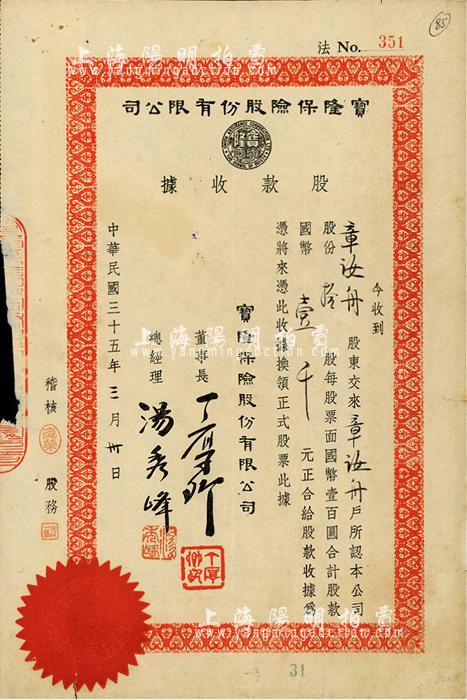 85
法 No. 351
上海陽明拍賣
www.yangmingauction.com
寶隆保險股份有限公司
股款收據
今收到
章汝舟股東交來章汝舟戶所認本公司
股份拾股每股票面國幣壹百圓合計股款
國幣壹千元正合給股款收據為
憑將來憑此收據換領正式股票此據
寶隆保險股份有限公司
董事長
總經理 湯秀峰
中華民國三十五年三月卅日
稽核
股務
上海陽明拍賣
www.yangmingauction.com
上海陽明拍賣
www.yangmingauction.com
31